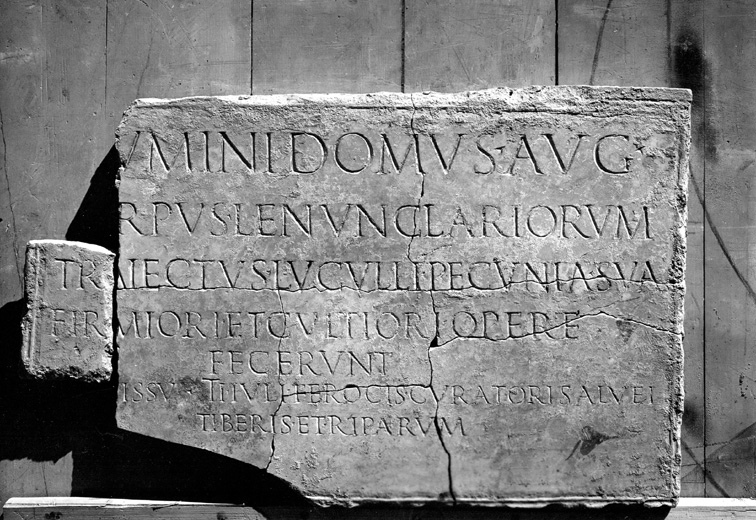 VMINI DOMVS AVG
RPVS LENVNCLARIORVM
TRAIECTVS LVCVLLI PECVNIA SVA
FIRMIORI ET CVLTIORI OPERE
FECERVNT
ISSV TI IVLI HEROCIS CVRATORIS ALVEI
TIBERIS ET RIPARVM